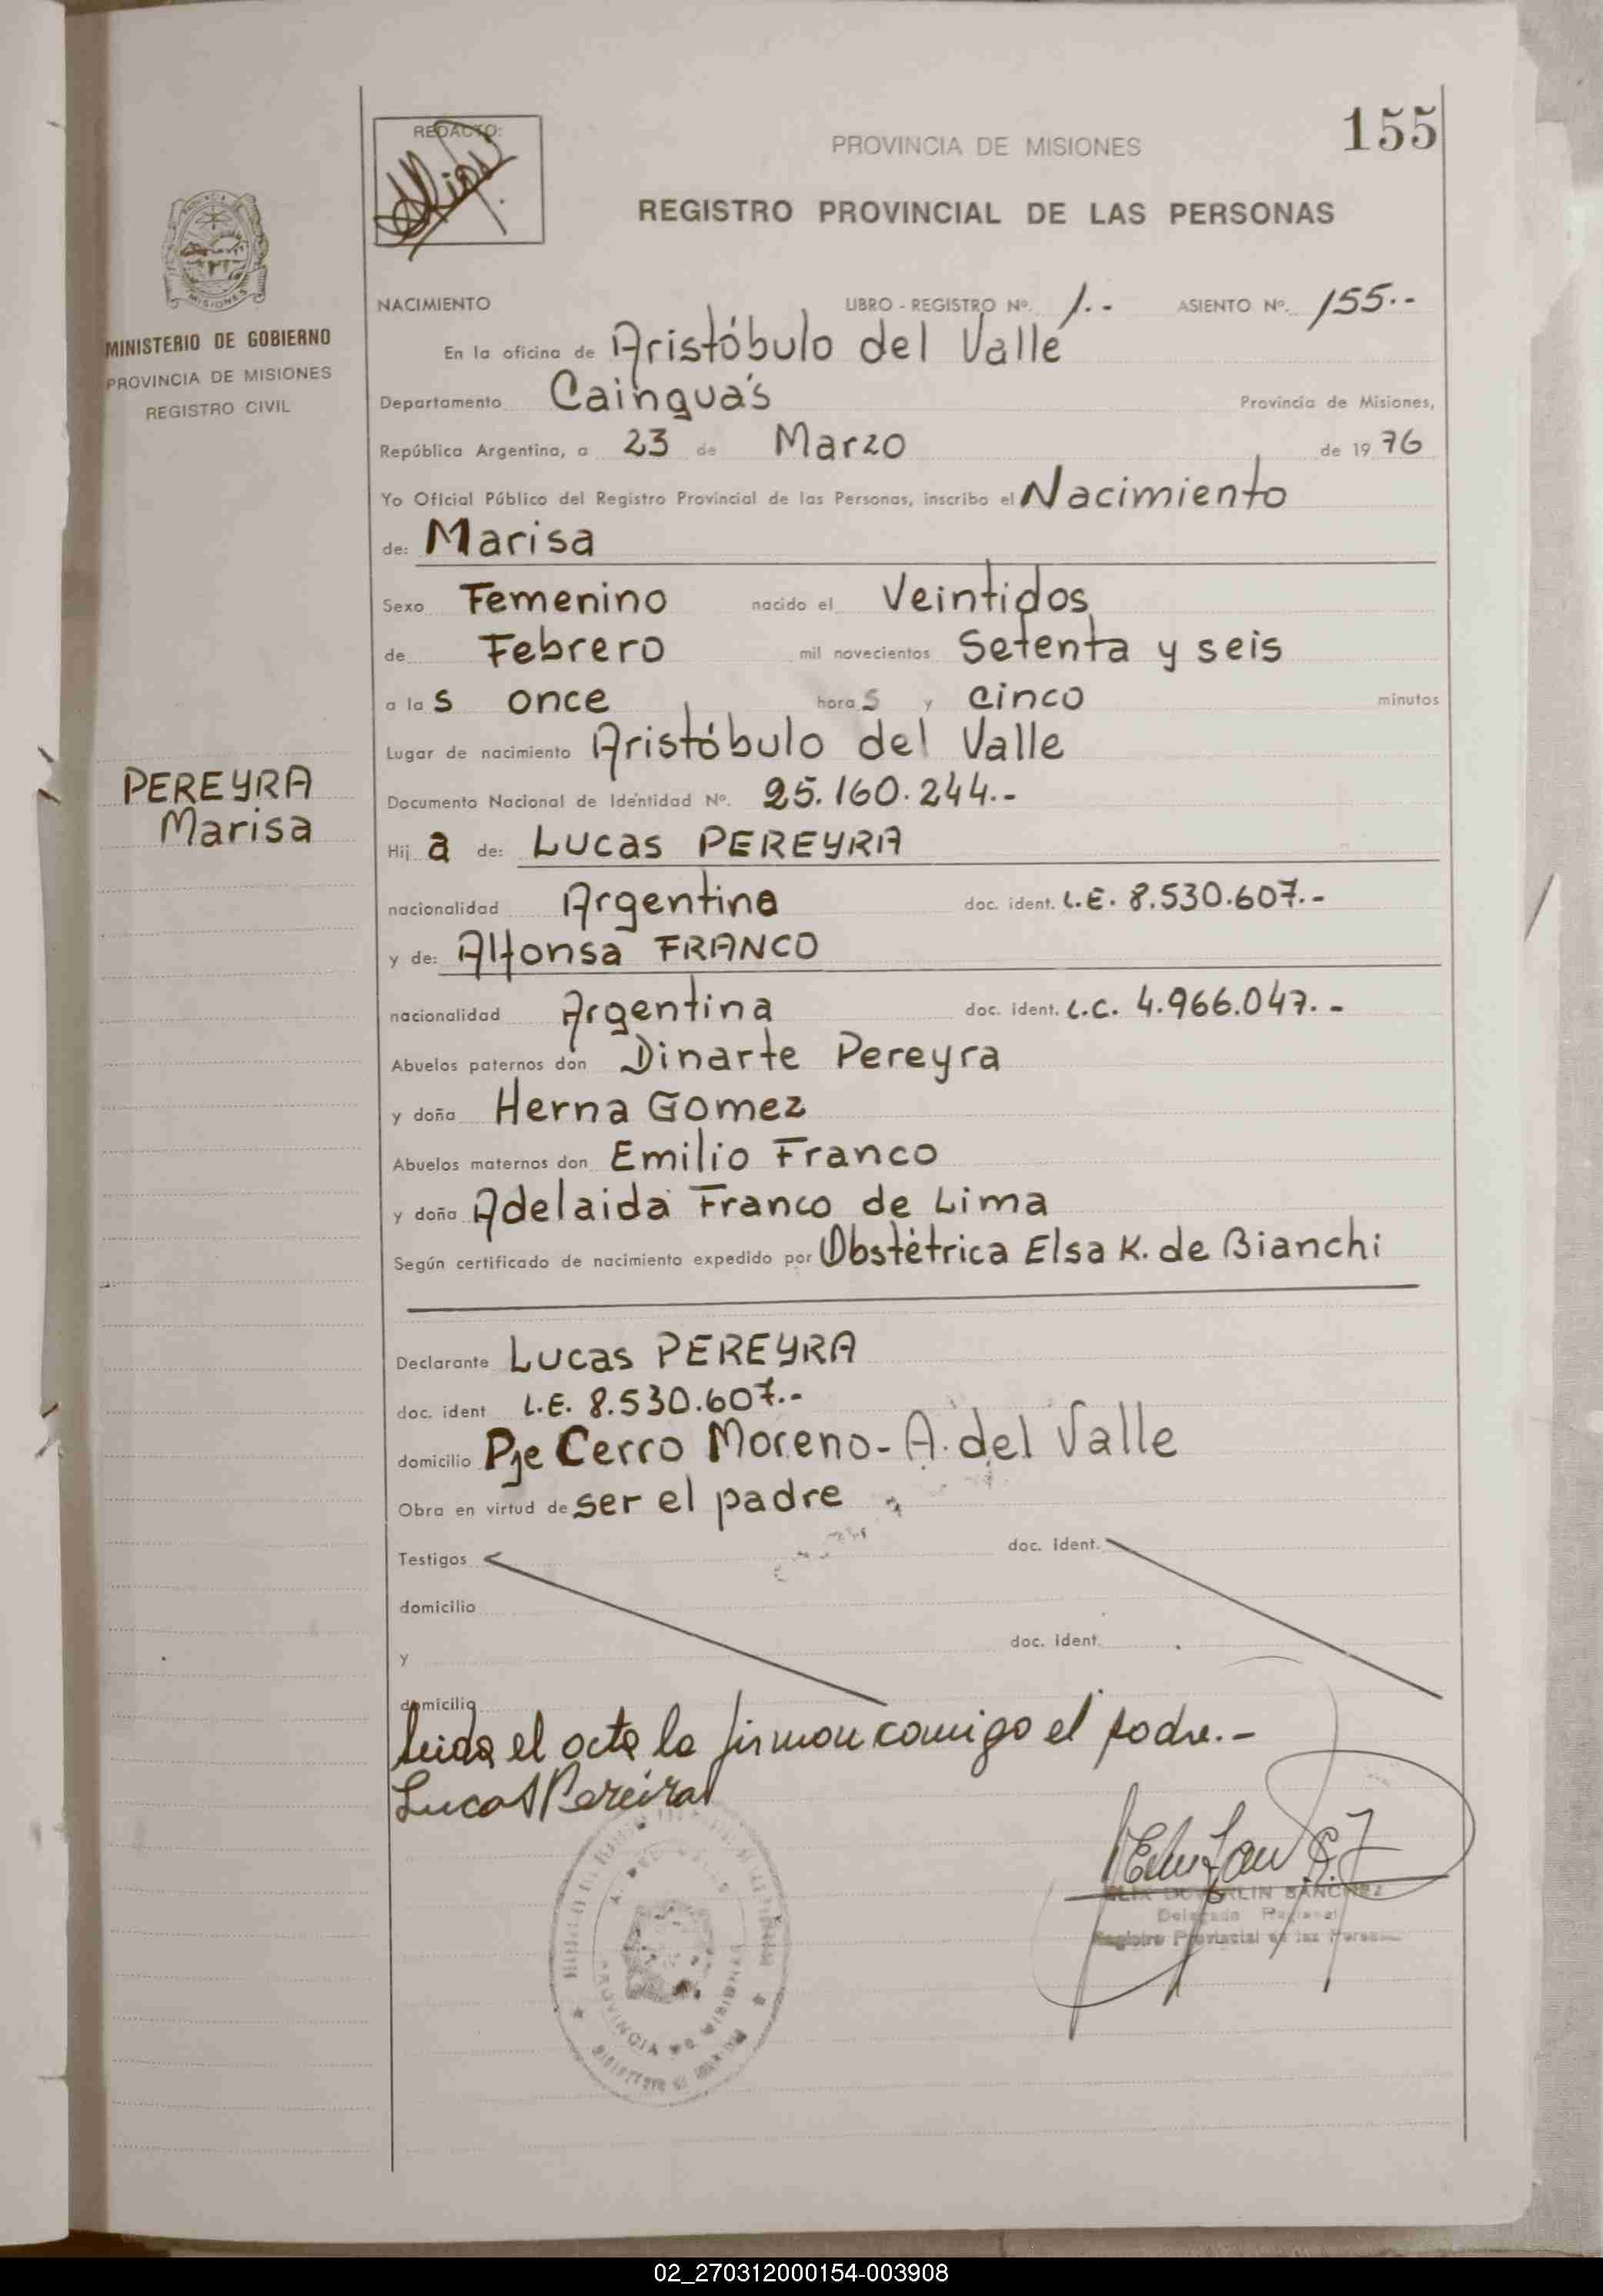 155
REDACTO:
PROVINCIA DE MISIONES
REGISTRO PROVINCIAL DE LAS PERSONAS
MISIONES
MINISTERIO DE GOBIERNO
PROVINCIA DE MISIONES
REGISTRO CIVIL
PEREYRA
Marisa
NACIMIENTO LIBRO - REGISTRO Nº 1.- ASIENTO Nº. 155.-
En la oficina de Aristóbulo del Valle
Departamento Cainguás Provincia de Misiones,
República Argentina, a 23 de Marzo de 19 76
Yo Oficial Público del Registro Provincial de las Personas, inscribo el Nacimiento
de: Marisa
Sexo Femenino nacido el Veintidos
de Febrero mil novecientos Setenta y seis
a las once horas y cinco minutos
Lugar de nacimiento Aristóbulo del Valle
Documento Nacional de Identidad Nº. 25.160.244.-
Hija de: Lucas PEREYRA
nacionalidad Argentina doc. ident. L.E. 8.530.607.-
y de: Alfonsa FRANCO
nacionalidad Argentina doc. ident. L.C. 4.966.047.-
Abuelos paternos don Dinarte Pereyra
y doña Herna Gomez
Abuelos maternos don Emilio Franco
y doña Adelaida Franco de Lima
Según certificado de nacimiento expedido por Obstétrica Elsa K. de Bianchi
Declarante Lucas PEREYRA
doc. ident L.E. 8.530.607.-
domicilio Pje Cerro Moreno - A. del Valle
Obra en virtud de ser el padre
Testigos doc. ident.
domicilio
y doc. ident.
domicilio
Leida el acta la firman comigo el padre.-
Lucas Pereira
SANCHEZ
Delegado Regional
Registro Provincial de las
PROVINCIA DE MISIONES
02_270312000154-003908